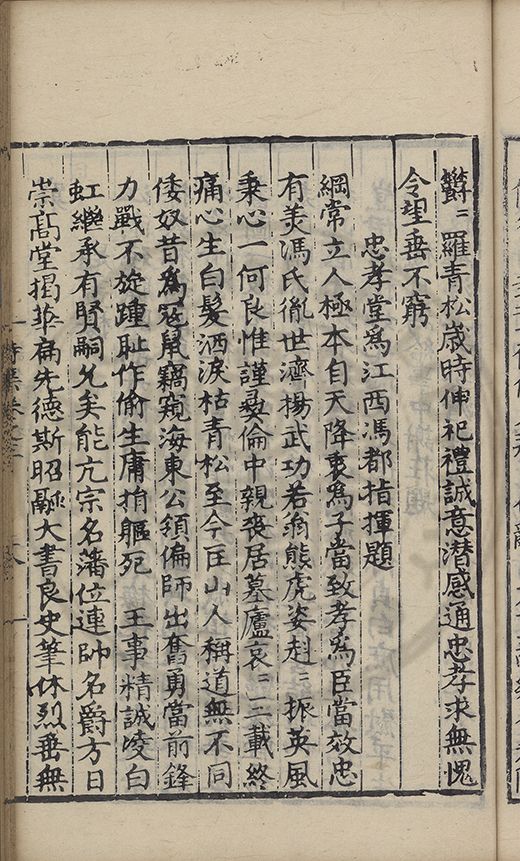 欝〻羅青松歲時伸祀禮誠意潛感通忠孝求無愧
令望垂不窮
忠孝堂爲江西馮都指揮題
綱常立人極本自天降衷爲子當致孝爲臣當效忠
有美馮氏胤世濟揚武功若翁熊虎姿赳〻振英風
秉心一何良惟謹彝倫中親喪居墓廬哀〻三載終
痛心生白髮洒淚枯青松至今匡山人稱道無不同
倭奴昔爲寇鼠竊窺海東公領偏師出奮勇當前鋒
力戰不旋踵恥作偷生庸捐軀死 王事精誠凌白
虹繼承有賢嗣允矣能亢宗名藩位連帥名爵方日
崇高堂揭華扁先德斯昭融大書良史筆休烈垂無